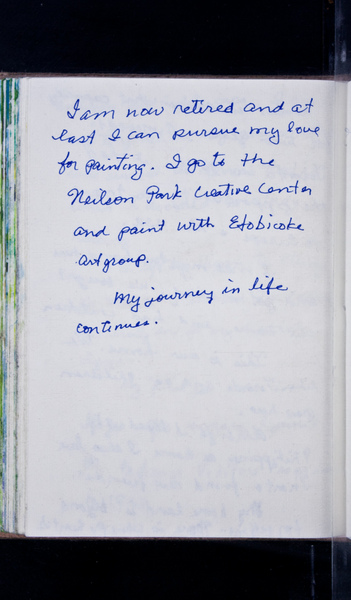 I am now retired and at
last I can pursue my love
for painting. I go to the
Neilson Park Creative Center
and paint with Etobicoke
art group.
My journey in life
continues.